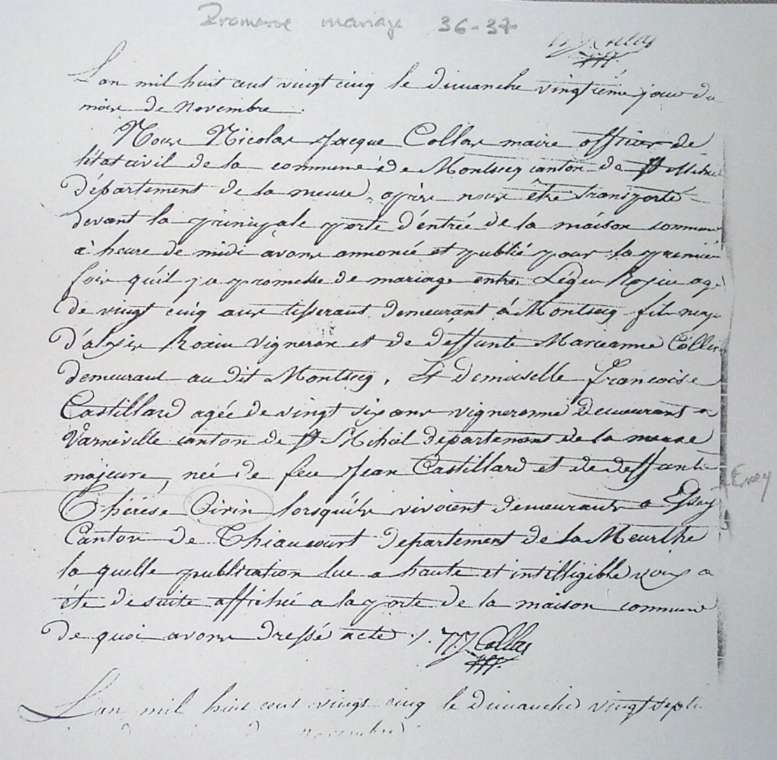 Promesse mariage 36-37
Lan mil huit cent vingt cinq le dimanche vingtième jour du
mois de novembre.
Nous Nicolas Jacque Collas maire officier de
létat civil de la commune de Montsecq canton de St Mihiel
département de la meuse, après nous être transporté
devant la principale porte d'entrée de la maison commune
a heure de midi avons annoncé et publié pour la premiere
fois qu'il y a promesse de mariage entre Léger Rosin agé
de vingt cinq ans tisserant demeurant a Montsecq fils maj
d'alexis Rosin vigneron et de deffunte Marieanne
demeurant au dit Montsecq, Et demoiselle francoise
Castillard agée de vingt six ans vigneronne demeurant a
Varnéville canton de St Mihiel departement de la meuse
majeure, née de feu Jean Castillard et de deffunte
Thérèse Sirin lorsqu'ils vivoient demeurants a Essey Essey
Canton de Thiaucourt departement de la Meurthe
la quelle publication lue a haute et intelligible voix a
été de suite affichée a la porte de la maison commune
de quoi avons dressé acte ./. N J Collas
Lan mil huit cent vingt cinq le dimanche vingt sept
novembre